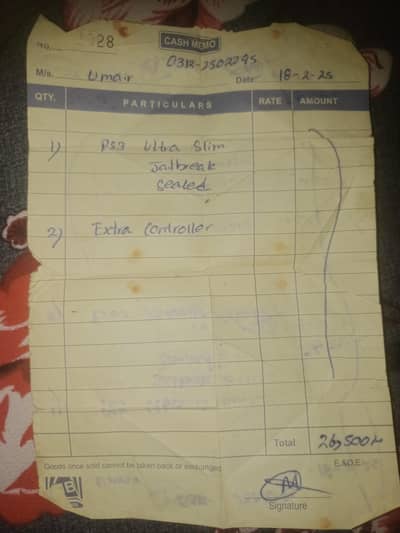 No. 28
CASH MEMO
0312-2502295
M/s. Umair Date 18-2-25
QTY. PARTICULARS RATE AMOUNT
1) PS3 Ultra Slim
Jailbreak
Sealed
2) Extra Controller
Total 26,500/-
Goods once sold cannot be taken back or exchanged E.&.O.E.
Signature